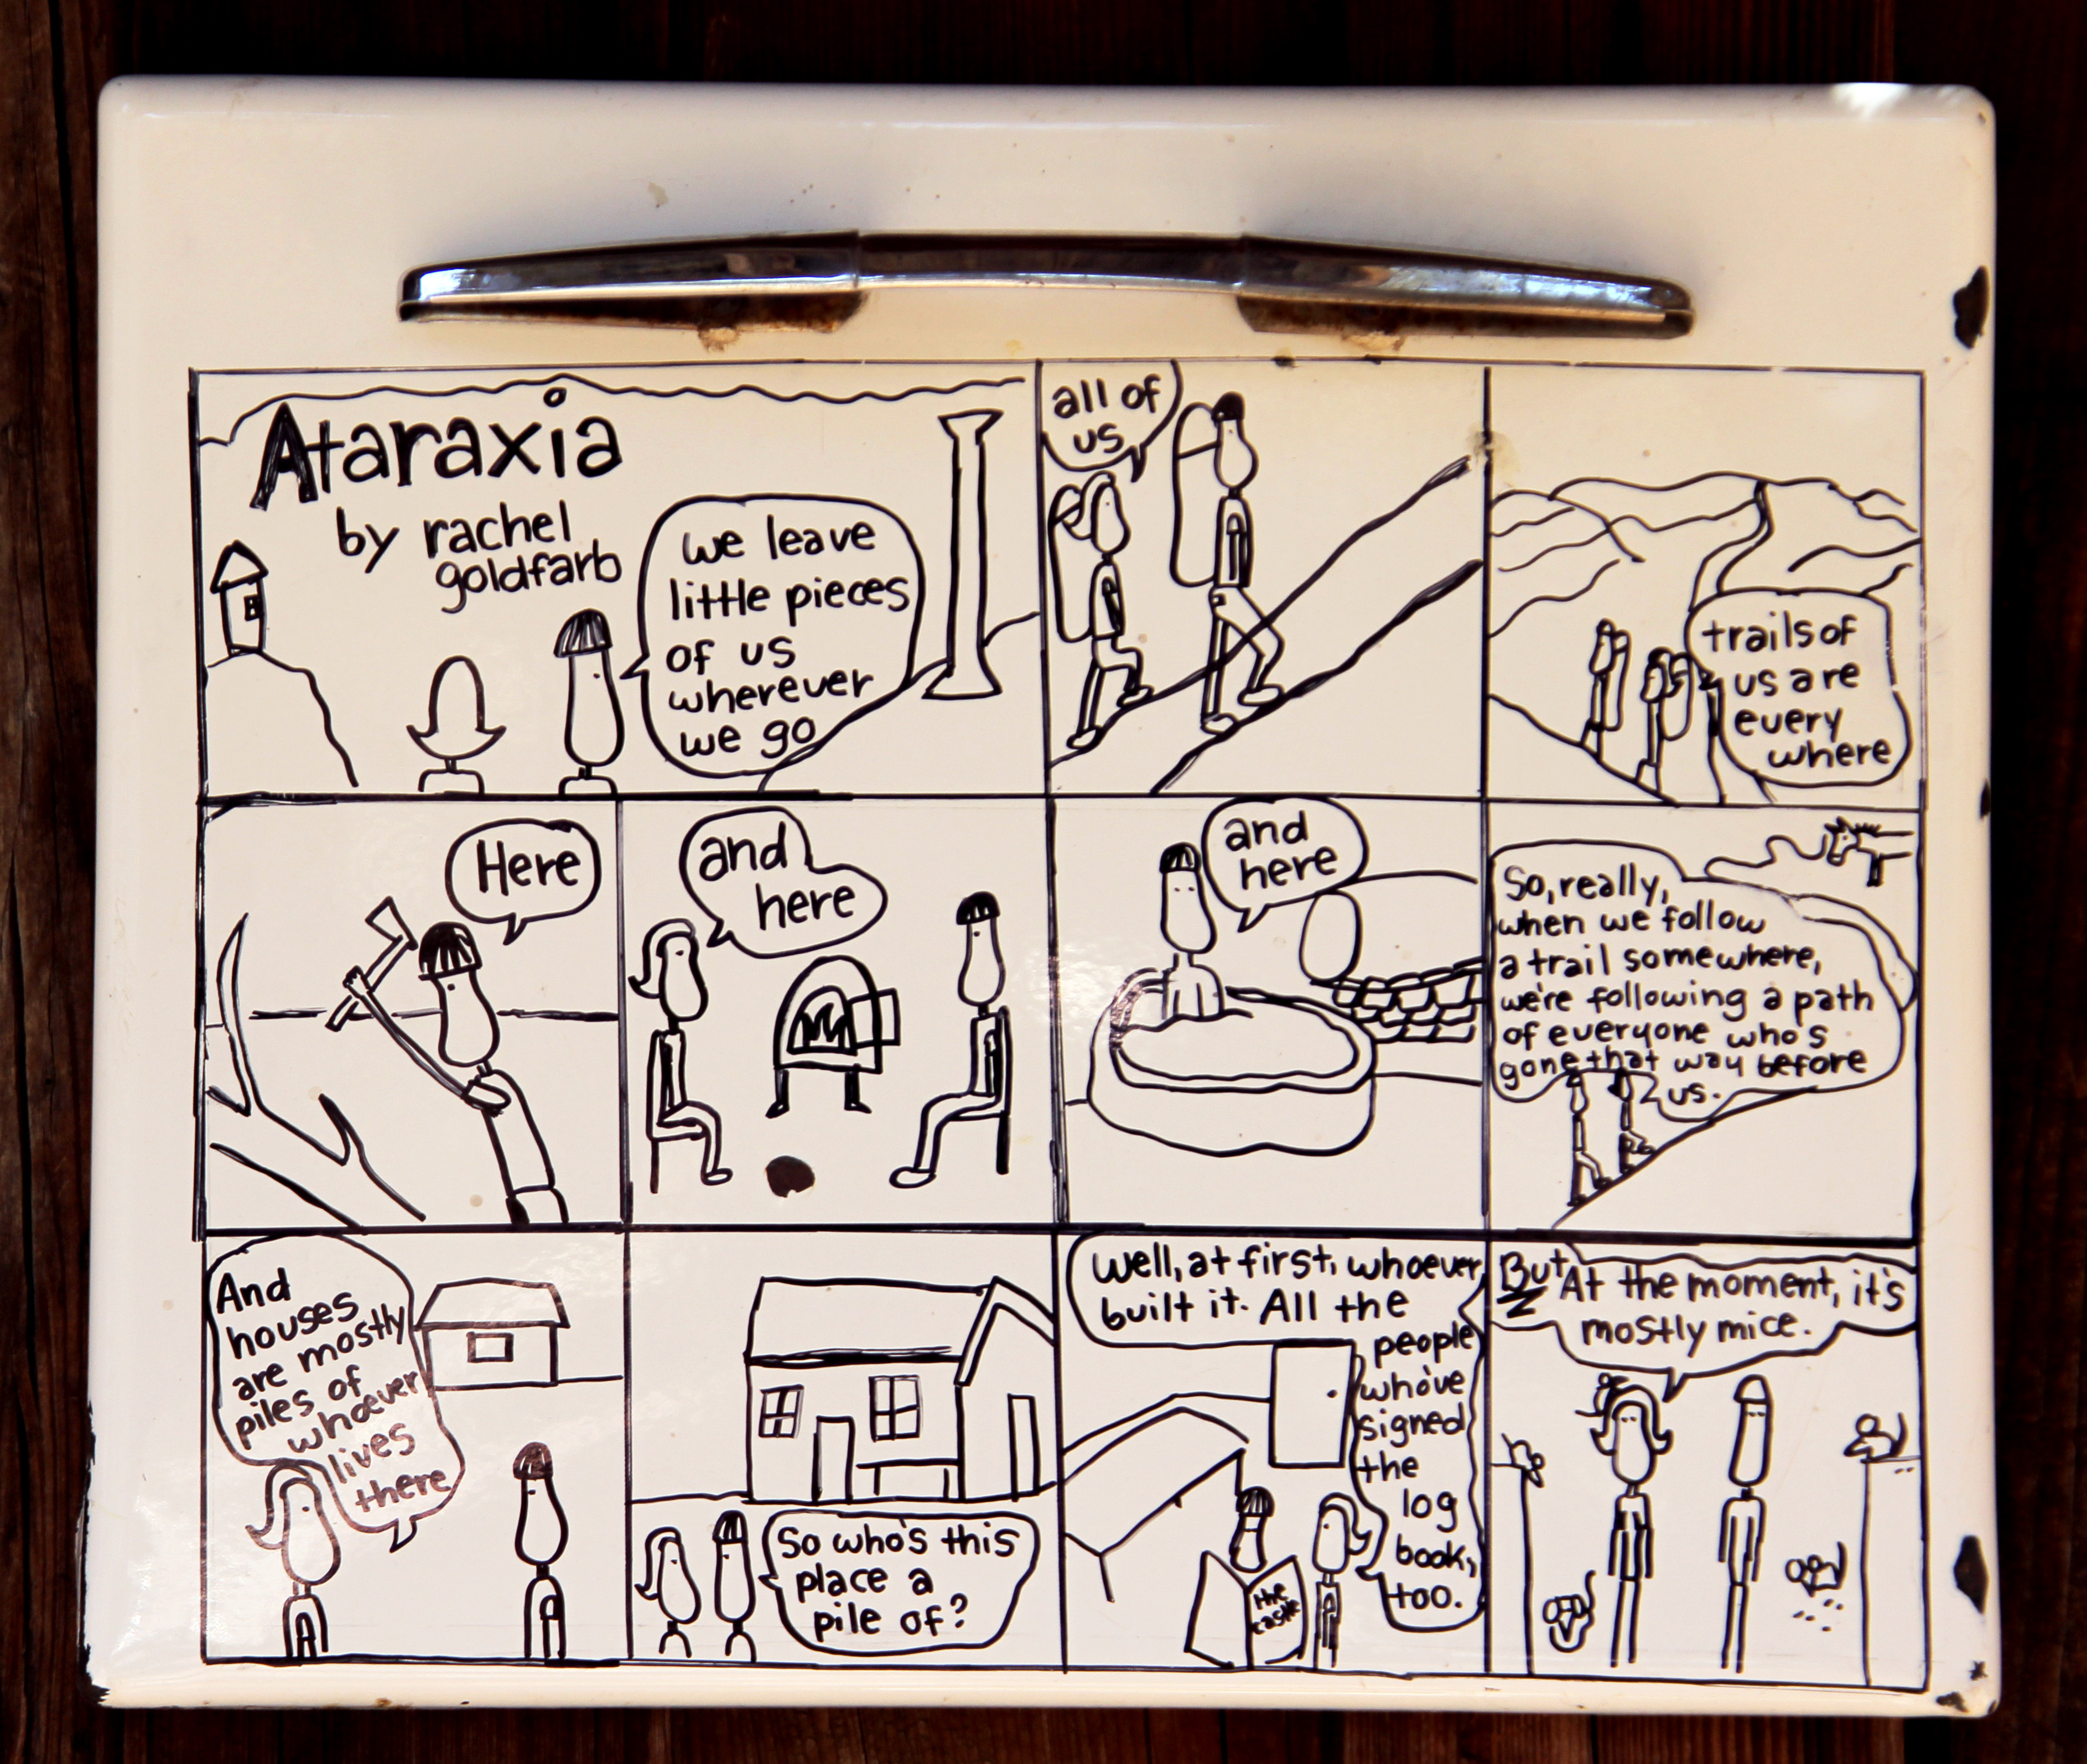 Ataraxia
by rachel
goldfarb
we leave
little pieces
of us
wherever
we go
all of
us
trails of
us are
every
where
Here
and
here
and
here
So, really,
when we follow
a trail somewhere,
we're following a path
of everyone who's
gone that way before
us.
And
houses
are mostly
piles of
whoever
lives
there
So who's this
place a
pile of?
Well, at first, whoever
built it. All the
people
who've
signed
the
log
book,
too.
the
castle
But,
At the moment, it's
mostly mice.